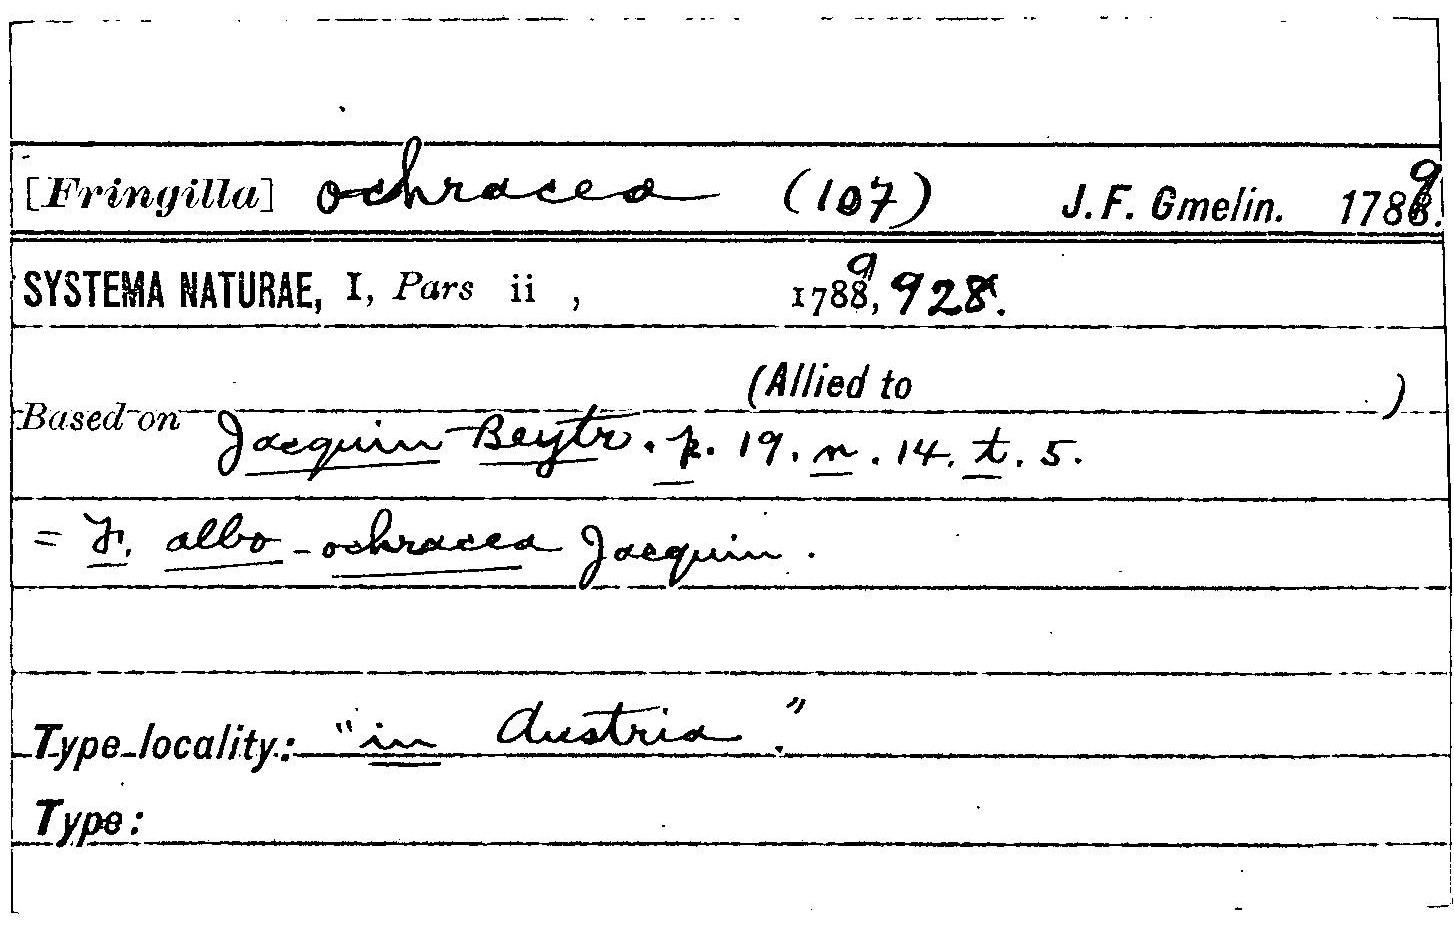 [Fringilla] ochracea (107) J. F. Gmelin. 1789.
SYSTEMA NATURAE, I, Pars ii , 1789, 928.
(Allied to )
Based on Jacquin Beytr. p. 19. n. 14. t. 5.
= F. albo-ochracea Jacquin.
Type locality: "in Austria."
Type: